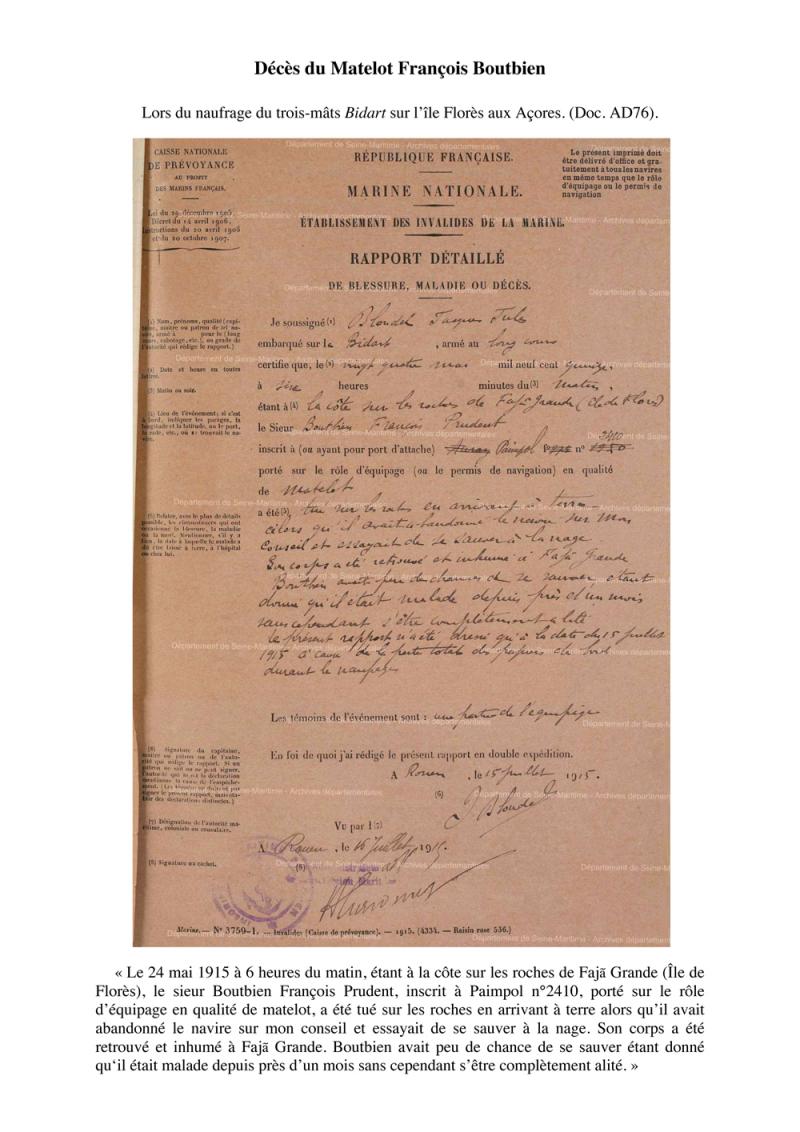 Décès du Matelot François Boutbien
Lors du naufrage du trois-mâts Bidart sur l'île Florès aux Açores. (Doc. AD76).
CAISSE NATIONALE
DE PRÉVOYANCE
AU PROFIT
DES MARINS FRANÇAIS.
Loi du 29 décembre 1905.
Décret du 14 avril 1906.
Instructions du 20 avril 1906
et du 20 octobre 1907.
RÉPUBLIQUE FRANÇAISE.
MARINE NATIONALE.
ÉTABLISSEMENT DES INVALIDES DE LA MARINE.
Le présent imprimé doit
être délivré d'office et gra-
tuitement à tous les navires
en même temps que le rôle
d'équipage ou le permis de
navigation
RAPPORT DÉTAILLÉ
DE BLESSURE, MALADIE OU DÉCÈS.
(1) Nom, prénoms, qualité (capi-
taine, maître ou patron de tel na-
vire, armé à pour le (long
cours, cabotage, etc.), ou grade de
l'autorité qui rédige le rapport.)
(2) Date et heure en toutes
lettres.
(3) Matin ou soir.
(4) Lieu de l'événement; si c'est
à bord, indiquer les parages, la
longitude et la latitude, ou le port,
la rade, etc., où se trouvait le na-
vire.
(5) Relater, avec le plus de détails
possible, les circonstances qui ont
occasionné la blessure, la maladie
ou la mort. Mentionner, s'il y a
lieu, la date à laquelle le malade a
dû être laissé à terre, à l'hôpital
ou chez lui.
Je soussigné (1) Blondel Jacques Jules
embarqué sur le Bidart, armé au long cours
certifie que, le (2) vingt quatre mai mil neuf cent quinze,
à six heures minutes du (3) matin,
étant à (4) la côte sur les roches de Fajã Grande (Ile de Florès)
le Sieur Boutbien François Prudent
inscrit à (ou ayant pour port d'attache) Paimpol n° 2410
porté sur le rôle d'équipage (ou le permis de navigation) en qualité
de matelot
a été (5) tué sur les roches en arrivant à terre
alors qu'il avait abandonné le navire sur mon
conseil et essayait de se sauver à la nage
Son corps a été retrouvé et inhumé à Fajã Grande
Boutbien avait peu de chances de se sauver étant
donné qu'il était malade depuis près d'un mois
sans cependant s'être complètement alité
Le présent rapport n'a été dressé qu'à la date du 15 juillet
1915 à cause de la perte totale des papiers de bord
durant le naufrage
Les témoins de l'événement sont : une partie de l'équipage
(6) Signature du capitaine,
maître ou patron ou de l'auto-
rité qui rédige le rapport. Si un
patron ne sait ou ne peut signer,
l'autorité qui reçoit la déclaration
mentionne la cause de l'empêche-
ment.
(7) Désignation de l'autorité ma-
ritime, coloniale ou consulaire.
(8) Signature et cachet.
En foi de quoi j'ai rédigé le présent rapport en double expédition.
A Rouen, le 15 juillet 1915.
(6)
J. Blondel
Vu par l (7)
A Rouen, le 16 juillet 1915.
(8)
Marine. — N° 3759-1. — Invalides (Caisse de prévoyance). — 1915. (4334. — Raisin rose 536.)
Département de Seine-Maritime - Archives départementales
« Le 24 mai 1915 à 6 heures du matin, étant à la côte sur les roches de Fajã Grande (Île de
Florès), le sieur Boutbien François Prudent, inscrit à Paimpol n°2410, porté sur le rôle
d'équipage en qualité de matelot, a été tué sur les roches en arrivant à terre alors qu'il avait
abandonné le navire sur mon conseil et essayait de se sauver à la nage. Son corps a été
retrouvé et inhumé à Fajã Grande. Boutbien avait peu de chance de se sauver étant donné
qu'il était malade depuis près d'un mois sans cependant s'être complètement alité. »